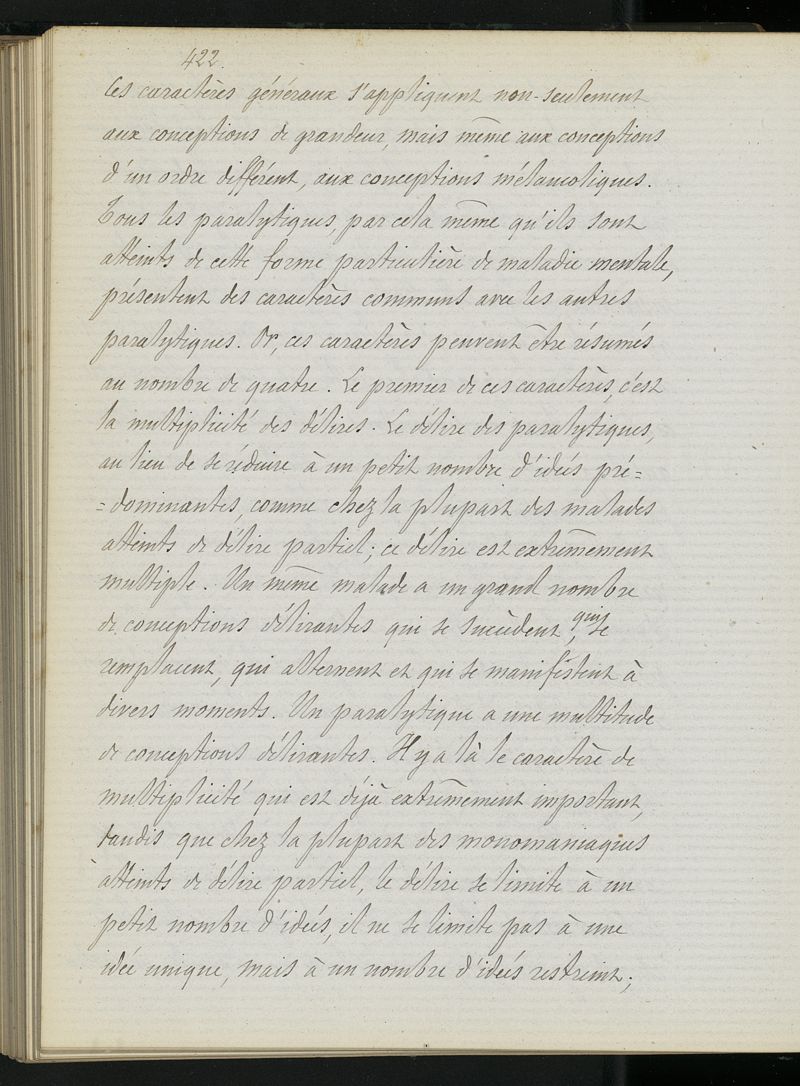 422.
Ces caractères généraux s'appliquent non-seulement
aux conceptions de grandeur, mais même aux conceptions
d'un ordre différent, aux conceptions mélancoliques.
Tous les paralytiques, par cela même qu'ils sont
atteints de cette forme particulière de maladie mentale,
présentent des caractères communs avec les autres
paralytiques. Or, ces caractères peuvent être résumés
au nombre de quatre. Le premier de ces caractères, c'est
la multiplicité des délires. Le délire des paralytiques,
au lieu de se réduire à un petit nombre d'idées pré=
=dominantes, comme chez la plupart des malades
atteints de délire partiel; ce délire est extrêmement
multiple. Un même malade a un grand nombre
de conceptions délirantes qui se succèdent, qui se
remplacent, qui alternent et qui se manifestent à
divers moments. Un paralytique a une multitude
de conceptions délirantes. Il y a là le caractère de
multiplicité qui est déjà extrêmement important,
tandis que chez la plupart des monomaniaques
atteints de délire partiel, le délire se limite à un
petit nombre d'idées, il ne se limite pas à une
idée unique, mais à un nombre d'idées restreint;